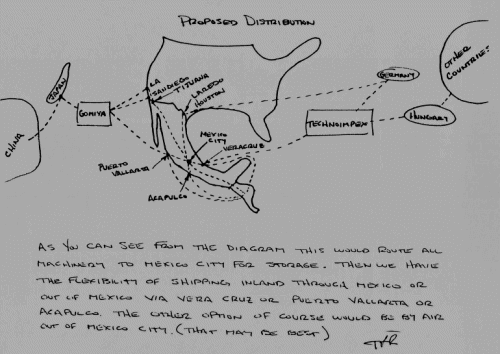 PROPOSED DISTRIBUTION
LA
SAN DIEGO
TITUANA
LAREDO
HOUSTON
JAPAN
GOMIYA
CHINA
GERMANY
OTHER
COUNTRIES
TECHNOIMPEX
HUNGARY
MEXICO
CITY
VERACRUZ
PUERTO
VALLARTA
ACAPULCO
AS YOU CAN SEE FROM THE DIAGRAM THIS WOULD ROUTE ALL
MACHINERY TO MEXICO CITY FOR STORAGE. THEN WE HAVE
THE FLEXIBILITY OF SHIPPING INLAND THROUGH MEXICO OR
OUT OF MEXICO VIA VERA CRUZ OR PUERTO VALLARTA OR
ACAPULCO. THE OTHER OPTION OF COURSE WOULD BE BY AIR
OUT OF MEXICO CITY. (THAT MAY BE BEST)